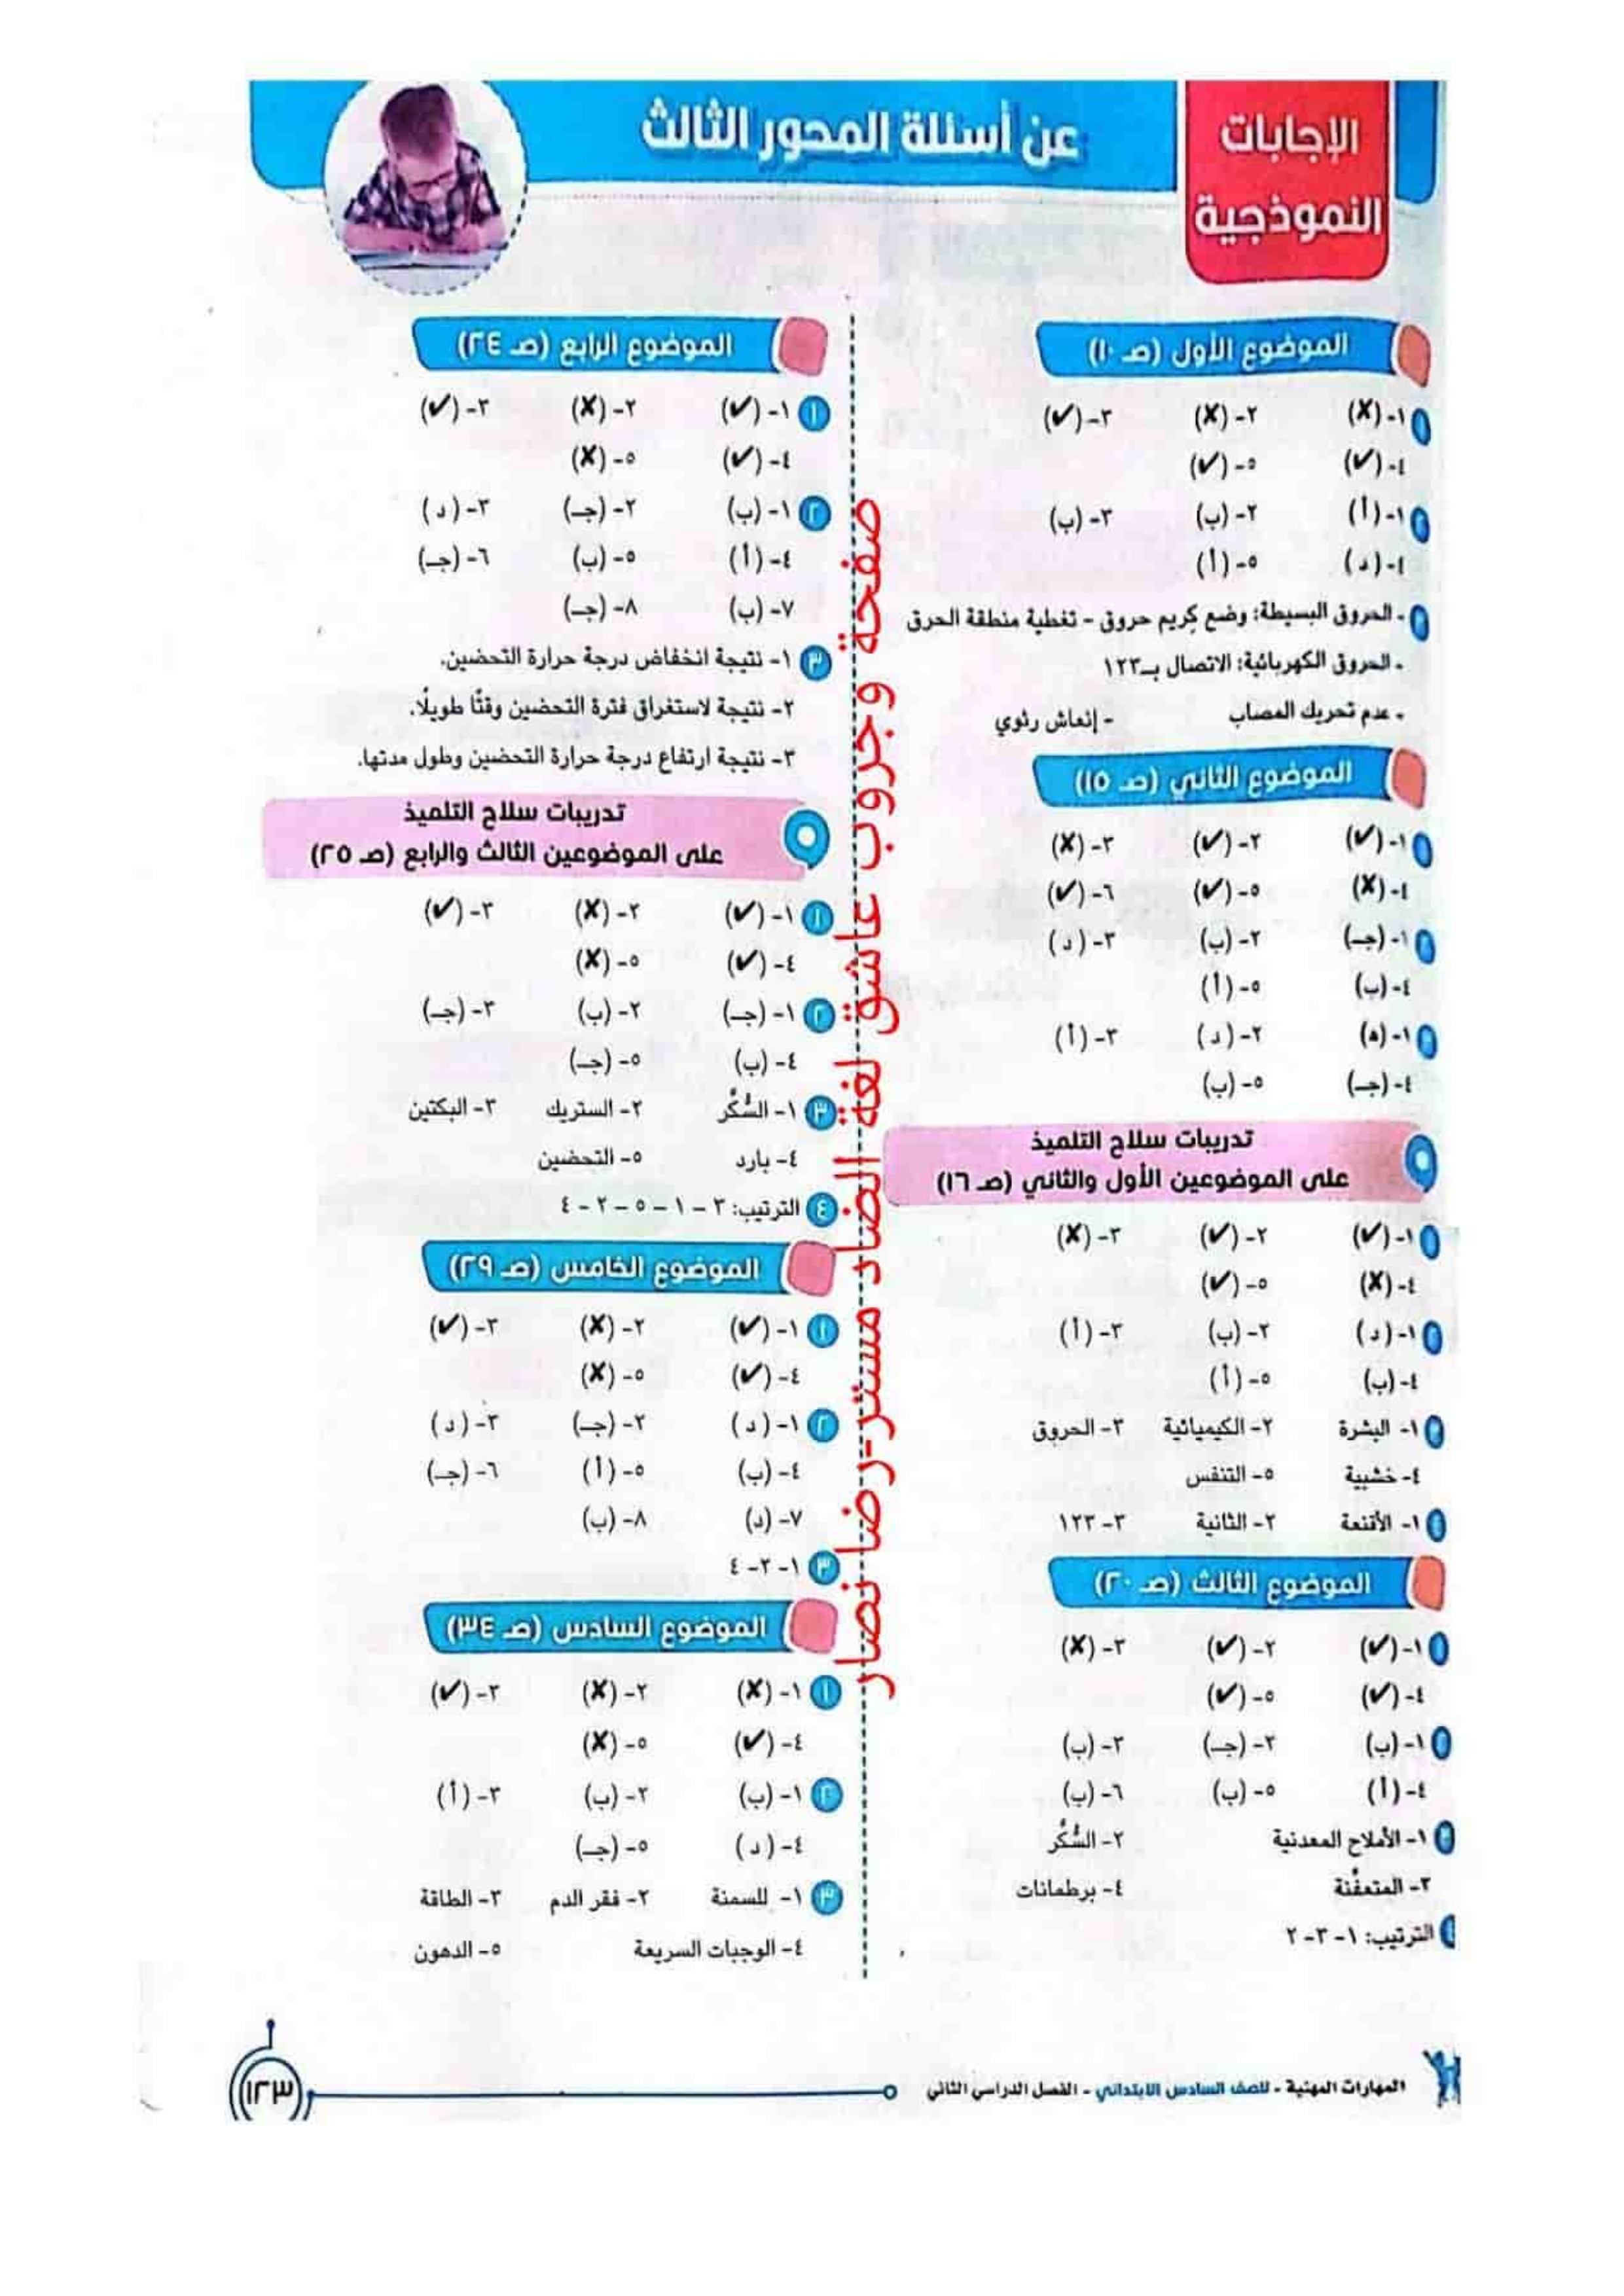 الإجابات
النموذجية
عن أسئلة المحور الثالث
الموضوع الأول (صـ ١٠)
١- (✗) ٢- (✗) ٣- (✓)
٤- (✓) ٥- (✓)
١- (أ) ٢- (ب) ٣- (ب)
٤- (د) ٥- (أ)
- الحروق البسيطة: وضع كريم حروق - تغطية منطقة الحرق
- الحروق الكهربائية: الاتصال بـ١٢٣
- عدم تحريك المصاب - إنعاش رئوي
الموضوع الثاني (صـ ١٥)
١- (✓) ٢- (✓) ٣- (✗)
٤- (✗) ٥- (✓) ٦- (✓)
١- (جـ) ٢- (ب) ٣- (د)
٤- (ب) ٥- (أ)
١- (ه) ٢- (د) ٣- (أ)
٤- (جـ) ٥- (ب)
تدريبات سلاح التلميذ
على الموضوعين الأول والثاني (صـ ١٦)
١- (✓) ٢- (✓) ٣- (✗)
٤- (✗) ٥- (✓)
١- (د) ٢- (ب) ٣- (أ)
٤- (ب) ٥- (أ)
١- البشرة ٢- الكيميائية ٣- الحروق
٤- خشبية ٥- التنفس
١- الأقنعة ٢- الثانية ٣- ١٢٣
الموضوع الثالث (صـ ٢٠)
١- (✓) ٢- (✓) ٣- (✗)
٤- (✓) ٥- (✓)
١- (ب) ٢- (جـ) ٣- (ب)
٤- (أ) ٥- (ب) ٦- (ب)
١- الأملاح المعدنية ٢- السُّكَّر
٣- المتعفِّنة ٤- برطمانات
الترتيب: ١- ٣- ٢
الموضوع الرابع (صـ ٢٤)
١ ١- (✓) ٢- (✗) ٣- (✓)
٤- (✓) ٥- (✗)
٢ ١- (ب) ٢- (جـ) ٣- (د)
٤- (أ) ٥- (ب) ٦- (جـ)
٧- (ب) ٨- (جـ)
٣ ١- نتيجة انخفاض درجة حرارة التحضين.
٢- نتيجة لاستغراق فترة التحضين وقتًا طويلًا.
٣- نتيجة ارتفاع درجة حرارة التحضين وطول مدتها.
تدريبات سلاح التلميذ
على الموضوعين الثالث والرابع (صـ ٢٥)
١ ١- (✓) ٢- (✗) ٣- (✓)
٤- (✓) ٥- (✗)
٢ ١- (جـ) ٢- (ب) ٣- (جـ)
٤- (ب) ٥- (جـ)
٣ ١- السُّكَّر ٢- الستريك ٣- البكتين
٤- بارد ٥- التحضين
٤ الترتيب: ٣ - ١ - ٥ - ٢ - ٤
الموضوع الخامس (صـ ٢٩)
١ ١- (✓) ٢- (✗) ٣- (✓)
٤- (✓) ٥- (✗)
٢ ١- (د) ٢- (جـ) ٣- (د)
٤- (ب) ٥- (أ) ٦- (جـ)
٧- (د) ٨- (ب)
٣ ١- ٢- ٤
الموضوع السادس (صـ ٣٤)
١ ١- (✗) ٢- (✗) ٣- (✓)
٤- (✓) ٥- (✗)
٢ ١- (ب) ٢- (ب) ٣- (أ)
٤- (د) ٥- (جـ)
٣ ١- للسمنة ٢- فقر الدم ٣- الطاقة
٤- الوجبات السريعة ٥- الدهون
صفحة وجروب عاشق لغة الضاد مستر-رضا نصار
المهارات المهنية - للصف السادس الابتدائي - الفصل الدراسي الثاني
١٢٣